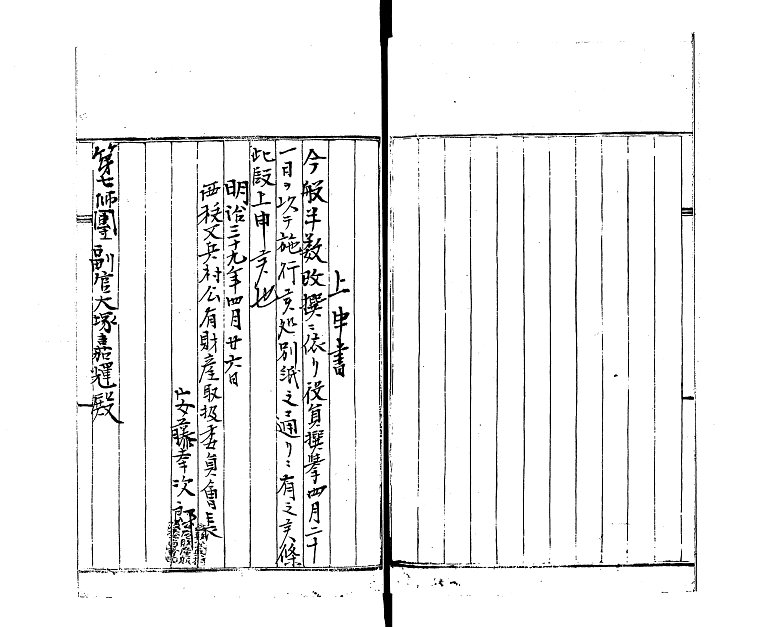 上申書
今般半数改撰ニ依リ役員撰挙四月二十
一日ヲ以テ施行候処別紙之通リニ有之候條
此段上申候也
明治三十九年四月廿六日
西秩父兵村公有財産取扱委員會長
安藤幸次郎
第七師團副官大塚嘉輝殿